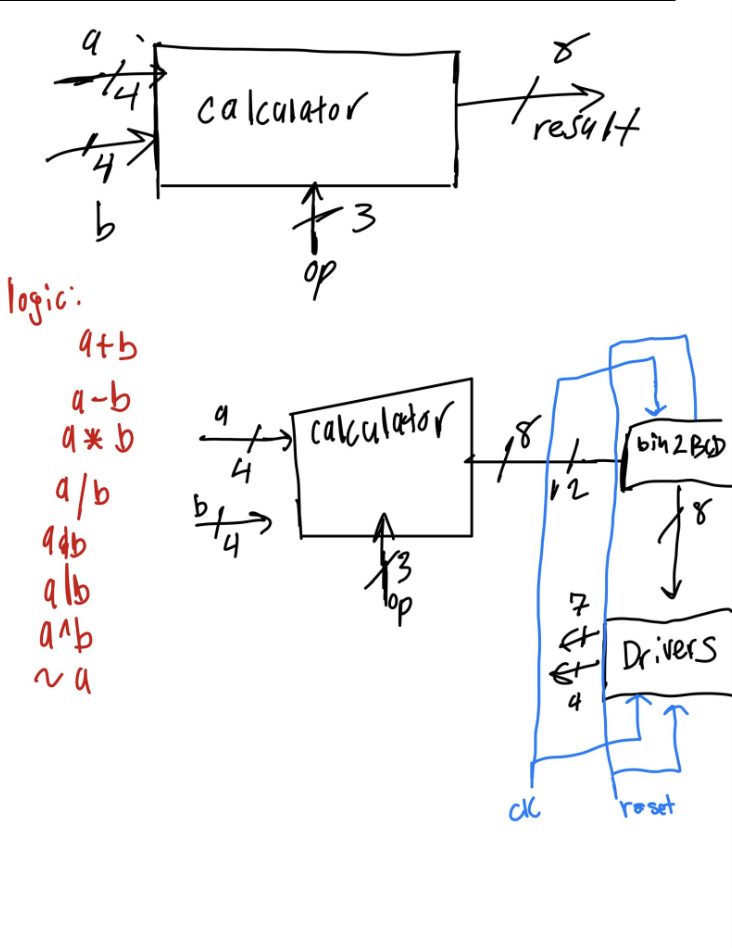 a
4
calculator
8
result
4
b
3
op
logic:
a+b
a-b
a * b
a/b
a&b
a|b
a^b
~a
a
4
b
4
calculator
3
op
8
12
bin2BCD
8
7
Drivers
4
clk
reset